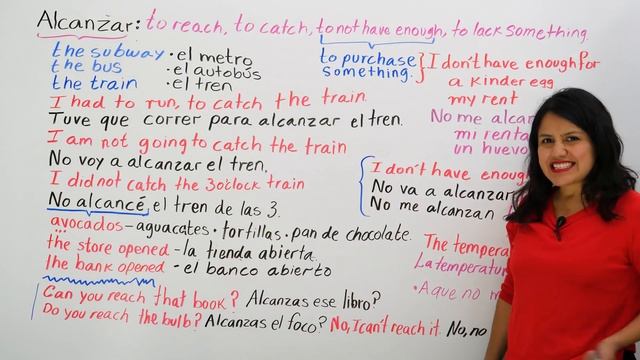 Alcanzar: to reach, to catch, to not have enough, to lack something.
the subway · el metro
the bus · el autobús
the train · el tren
to purchase
something.
I don't have enough for
a kinder egg
my rent
I had to run, to catch the train.
Tuve que correr para alcanzar el tren.
No me alcan
mi renta
un huevo
I am not going to catch the train
No voy a alcanzar el tren.
I did not catch the 3 o'clock train
No alcancé, el tren de las 3.
I don't have enough
No va a alcanzar
No me alcanzan
avocados - aguacates · tortillas · pan de chocolate.
the store opened - la tienda abierta.
the bank opened - el banco abierto
The tempera
La temperatur
· A que no m
Can you reach that book? Alcanzas ese libro?
Do you reach the bulb? Alcanzas el foco? No, I can't reach it. No, no